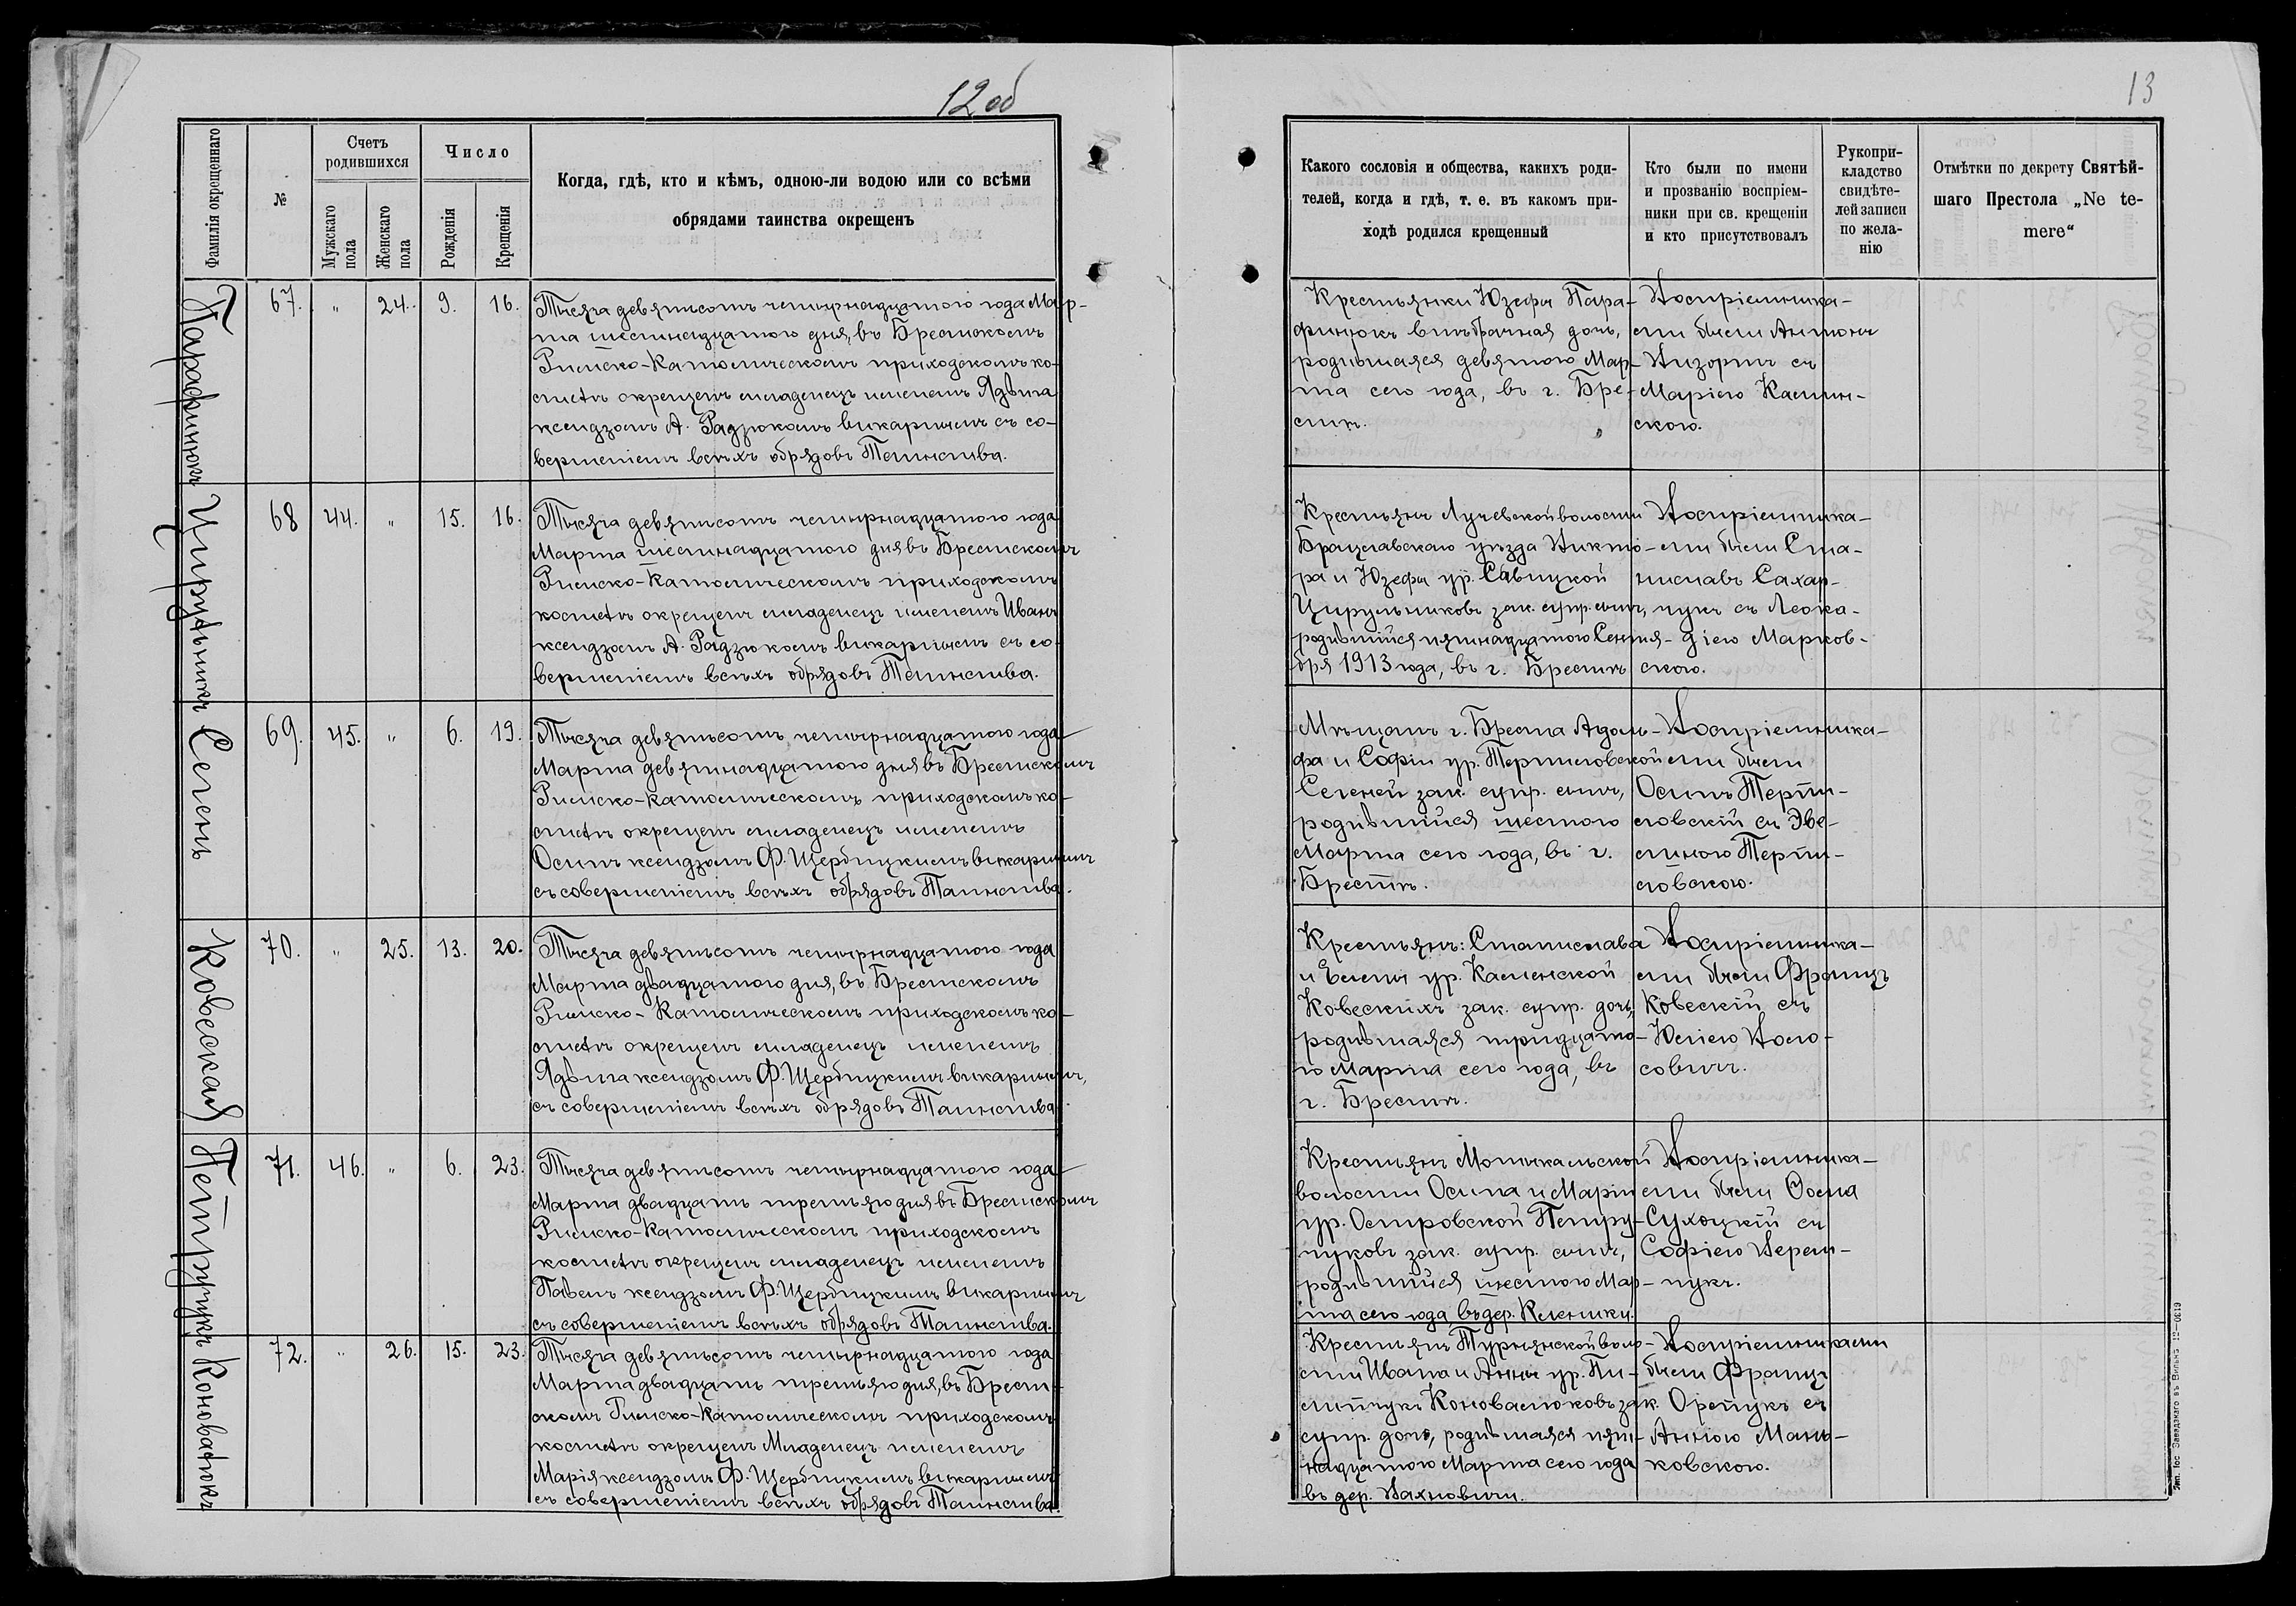 12 об
Фамилія окрещеннаго
№
Счетъ
родившихся
Мужскаго
пола
Женскаго
пола
Число
Рожденія
Крещенія
Когда, гдѣ, кто и кѣмъ, одною-ли водою или со всѣми
обрядами таинства окрещенъ
Парафинюкъ
67. " 24. 9. 16.
Тысяча девятьсотъ четырнадцатого года Мар-
та шестнадцатого дня, въ Брестскомъ
Римско-Католическомъ приходскомъ ко-
стелѣ окрещенъ младенецъ именемъ Ядвига
ксендзомъ А. Радзюкомъ викаріемъ съ со-
вершеніемъ всѣхъ обрядовъ Таинства.
Цирульникъ
68 44. " 15. 16.
Тысяча девятьсотъ четырнадцатого года
Марта шестнадцатого дня въ Брестскомъ
Римско-Католическомъ приходскомъ
костелѣ окрещенъ младенецъ именемъ Иванъ
ксендзомъ А. Радзюкомъ викаріемъ съ со-
вершеніемъ всѣхъ обрядовъ Таинства.
Сегень
69. 45. " 6. 19.
Тысяча девятьсотъ четырнадцатого года
Марта девятнадцатого дня въ Брестскомъ
Римско-Католическомъ приходскомъ ко-
стелѣ окрещенъ младенецъ именемъ
Осипъ ксендзомъ Ф. Щербицкимъ викаріемъ
съ совершеніемъ всѣхъ обрядовъ Таинства.
Ковеская
70. " 25. 13. 20.
Тысяча девятьсотъ четырнадцатого года
Марта двадцатого дня, въ Брестскомъ
Римско-Католическомъ приходскомъ ко-
стелѣ окрещенъ младенецъ именемъ
Ядвига ксендзомъ Ф. Щербицкимъ викаріемъ,
съ совершеніемъ всѣхъ обрядовъ Таинства.
Петручукъ
71. 46. " 6. 23.
Тысяча девятьсотъ четырнадцатого года
Марта двадцать третьяго дня въ Брестскомъ
Римско-Католическомъ приходскомъ
костелѣ окрещенъ младенецъ именемъ
Павелъ ксендзомъ Ф. Щербицкимъ викаріемъ
съ совершеніемъ всѣхъ обрядовъ Таинства.
Коновалюкъ
72. " 26. 15. 23.
Тысяча девятьсотъ четырнадцатого года
Марта двадцать третьяго дня, въ Брест-
скомъ Римско-Католическомъ приходскомъ
костелѣ окрещенъ Младенецъ именемъ
Марія ксендзомъ Ф. Щербицкимъ викаріемъ
съ совершеніемъ всѣхъ обрядовъ Таинства.
13
Какого сословія и общества, какихъ роди-
телей, когда и гдѣ, т. е. въ какомъ при-
ходѣ родился крещенный
Кто были по имени
и прозванію воспріем-
ники при св. крещеніи
и кто присутствовалъ
Рукопри-
кладство
свидѣте-
лей записи
по жела-
нію
Отмѣтки по декрету Святѣй-
шаго Престола „Ne te-
mere“
Крестьянки Юзефы Пара-
финюкъ внѣбрачная дочь,
родившаяся девятого Мар-
та сего года, въ г. Бре-
стѣ.
Воспріемника-
ми были Антонъ
Визоръ съ
Маріею Камин-
скою.
Крестьянъ Лучевской волости
Брацлавскаго уѣзда Викто-
ра и Юзефы ур. Савицкой
Цирульниковъ зак. супр. сынъ,
родившійся пятнадцатого Сентя-
бря 1913 года, въ г. Брестѣ
Воспріемника-
ми были Ста-
ниславъ Сахар-
чукъ съ Леока-
діею Марков-
скою.
Мѣщанъ г. Бреста Адоль-
фа и Софіи ур. Терпиловской
Сегеней зак. супр. сынъ,
родившійся шестого
Марта сего года, въ г.
Брестѣ.
Воспріемника-
ми были
Осипъ Терпи-
ловскій съ Эве-
линою Терпи-
ловскою.
Крестьянъ: Станислава
и Елены ур. Каменской
Ковескихъ зак. супр. дочь,
родившаяся тридцато-
го Марта сего года, въ
г. Брестѣ.
Воспріемника-
ми были Францъ
Ковескій съ
Юліею Воло-
совичъ.
Крестьянъ Мотыкальской
волости Осипа и Маріи
ур. Островской Петру-
чуковъ зак. супр. сынъ,
родившійся шестого Мар-
та сего года, въ дер. Клейники.
Воспріемника-
ми были Фома
Сухоцкій съ
Софіею Верем-
чукъ.
Крестьянъ Турнянской воло-
сти Ивана и Анны ур. Пи-
липчукъ Коноваlюковъ зак.
супр. дочь, родившаяся пят-
надцатого Марта сего года
въ дер. Вахновичи.
Воспріемниками
были Францъ
Орепукъ съ
Анною Мань-
ковскою.